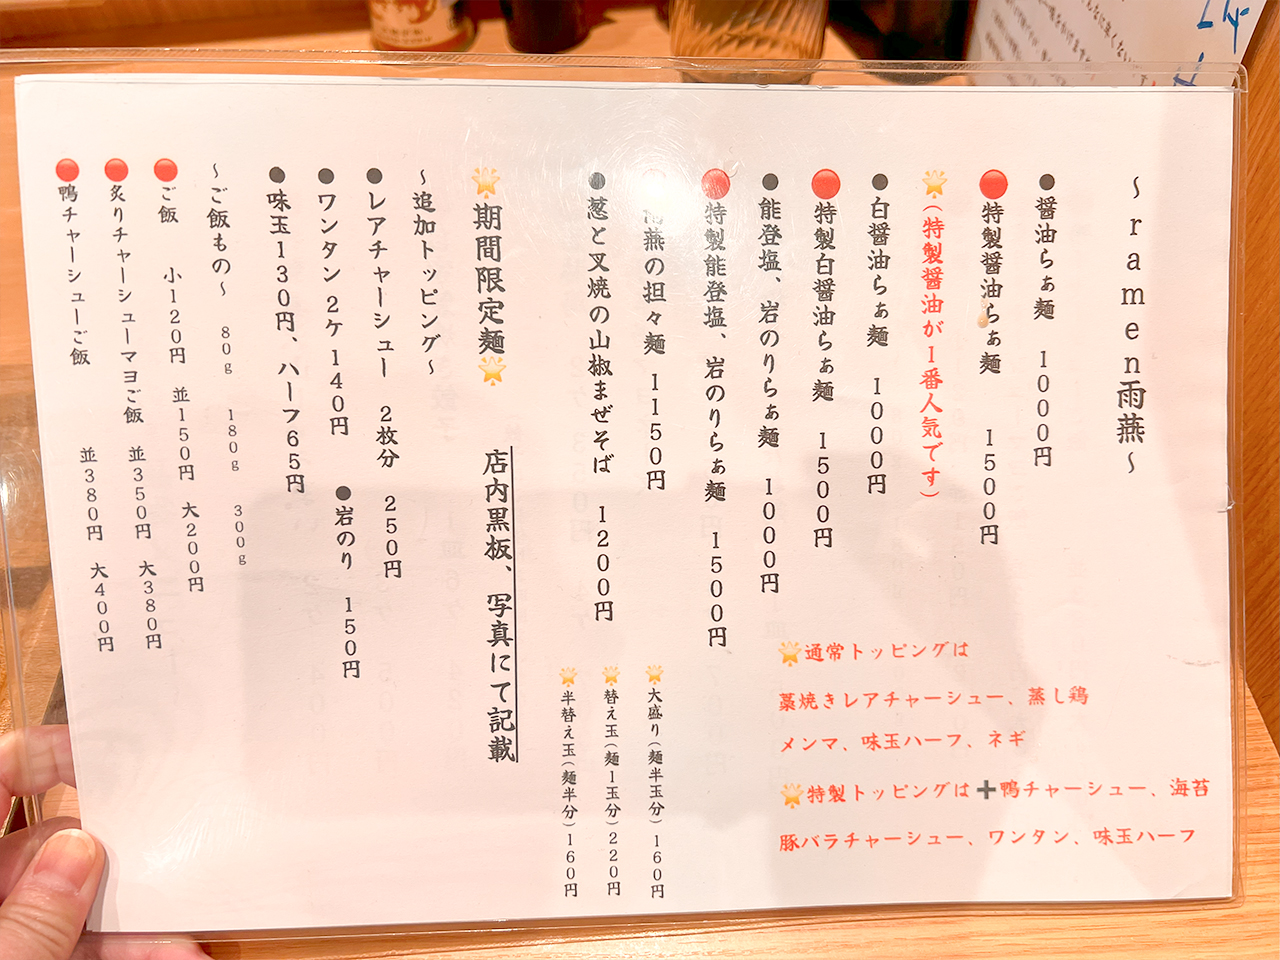 ～ramen雨燕～
●醤油らぁ麺 1000円
🔴特製醤油らぁ麺 1500円
🌟(特製醤油が1番人気です)
●白醤油らぁ麺 1000円
🔴特製白醤油らぁ麺 1500円
●能登塩、岩のりらぁ麺 1000円
🔴特製能登塩、岩のりらぁ麺 1500円
燕の担々麺 1150円
●葱と叉焼の山椒まぜそば 1200円
🌟通常トッピングは
藁焼きレアチャーシュー、蒸し鶏
メンマ、味玉ハーフ、ネギ
🌟特製トッピングは➕鴨チャーシュー、海苔
豚バラチャーシュー、ワンタン、味玉ハーフ
🌟大盛り(麺半玉分)160円
🌟替え玉(麺1玉分)220円
🌟半替え玉(麺半分)160円
🌟期間限定麺🌟 店内黒板、写真にて記載
～追加トッピング～
●レアチャーシュー 2枚分 250円
●ワンタン2ケ140円 ●岩のり 150円
●味玉130円、ハーフ65円
～ご飯もの～ 80g 180g 300g
🔴ご飯 小120円 並150円 大200円
🔴炙りチャーシューマヨご飯 並350円 大380円
🔴鴨チャーシューご飯 並380円 大400円